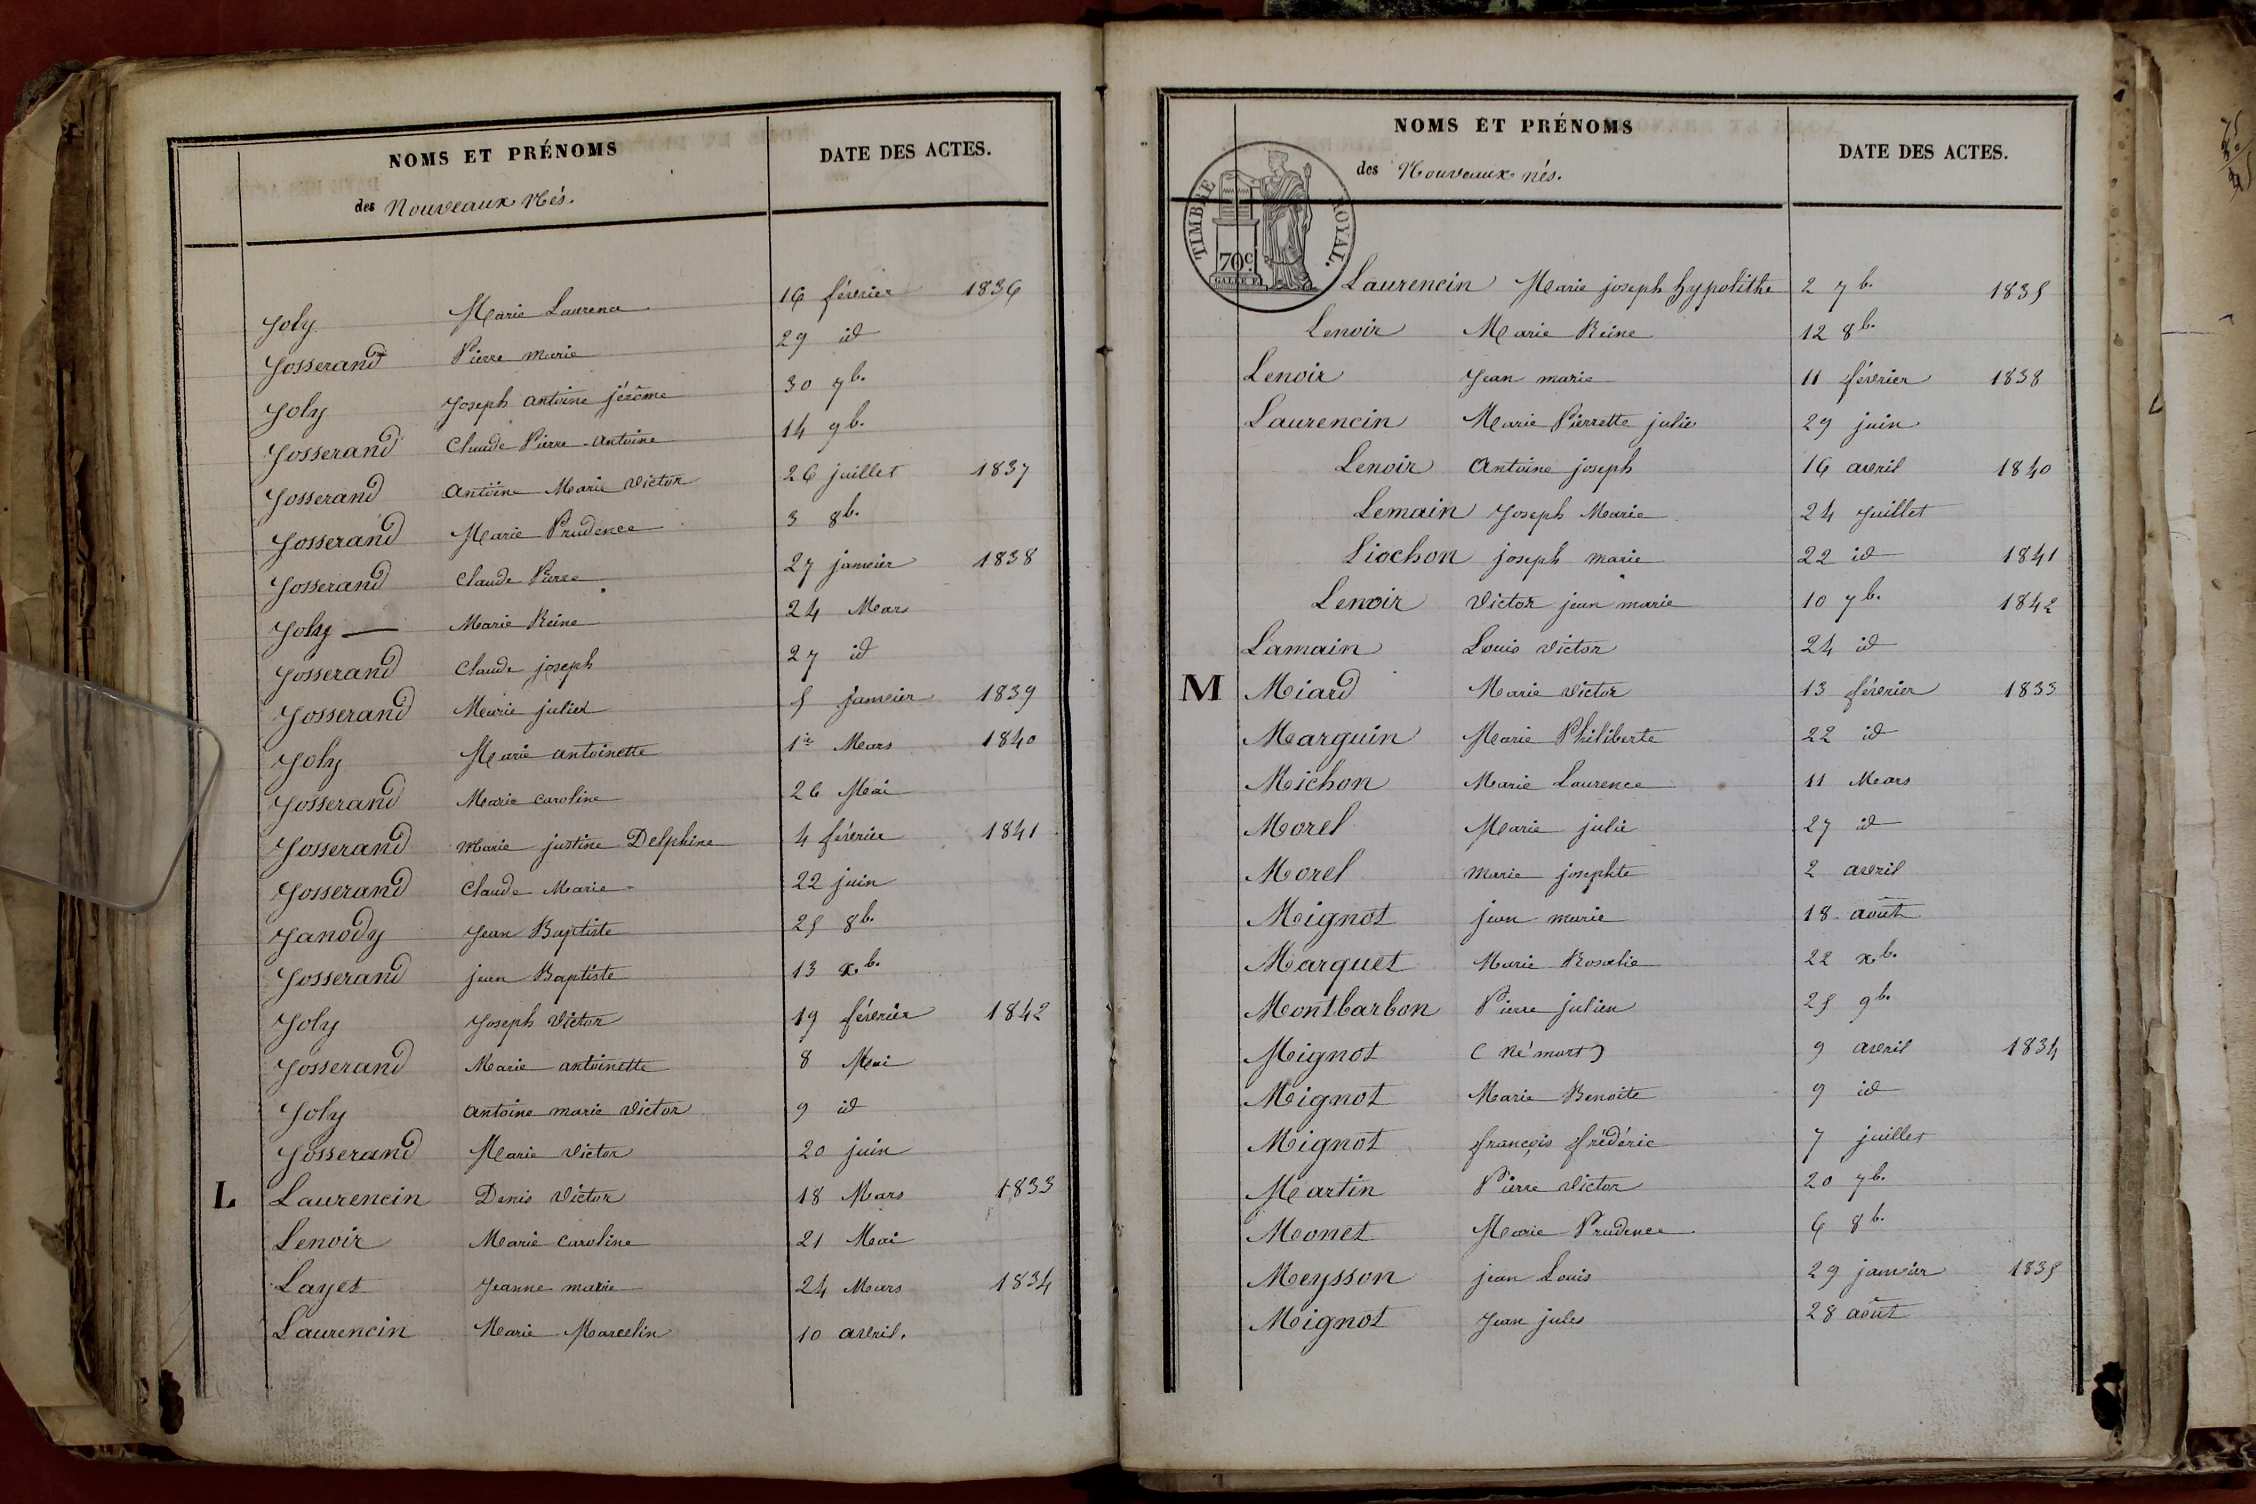 NOMS ET PRÉNOMS DATE DES ACTES.
des Nouveaux Nés.
Joly Marie Laurence 16 février 1836
Josserand Pierre marie 29 id
Joly Joseph antoine jérôme 30 7b.
Josserand Claude Pierre-antoine 14 9b.
Josserand Antoine Marie victor 26 juillet 1837
Josserand Marie Prudence 3 8b.
Josserand Claude Pierre 27 janvier 1838
Joly — Marie Reine 24 Mars
Josserand Claude joseph 27 id
Josserand Marie julien 5 janvier 1839
Joly Marie antoinette 1er Mars 1840
Josserand Marie caroline 26 Mai
Josserand Marie justine Delphine 4 février 1841
Josserand Claude Marie 22 juin
Janody Jean Baptiste 25 8b.
Josserand jean Baptiste 13 xb.
Joly Joseph victor 19 février 1842
Josserand Marie antoinette 8 Mai
Joly antoine marie victor 9 id
Josserand Marie victor 20 juin
L Laurencin Denis victor 18 Mars 1833
Lenoir Marie caroline 21 Mai
Layet Jeanne marie 24 Mars 1834
Laurencin Marie Marcelin 10 avril.
NOMS ET PRÉNOMS DATE DES ACTES.
des Nouveaux nés.
TIMBRE ROYAL.
70c
Laurencin Marie joseph hypolithe 2 7b. 1835
Lenoir Marie Reine 12 8b.
Lenoir Jean marie 11 février 1838
Laurencin Marie Pierrette julie 29 juin
Lenoir Antoine joseph 16 avril 1840
Lemain Joseph Marie 24 Juillet
Liochon joseph marie 22 id 1841
Lenoir victor jean marie 10 7b. 1842
Lamain Louis victor 24 id
M Miard Marie victor 13 février 1833
Marguin Marie Philiberte 22 id
Michon Marie Laurence 11 Mars
Morel Marie julie 27 id
Morel Marie josephte 2 avril
Mignot jean marie 18 août
Marguet Marie Rosalie 22 xb.
Montbarbon Pierre julien 25 9b.
Mignot (né mort) 9 avril 1834
Mignot Marie Benoite 9 id
Mignot françois frédéric 7 juillet
Martin Pierre victor 20 7b.
Monet Marie Prudence 6 8b.
Meysson jean Louis 29 janvier 1835
Mignot Jean jules 28 août